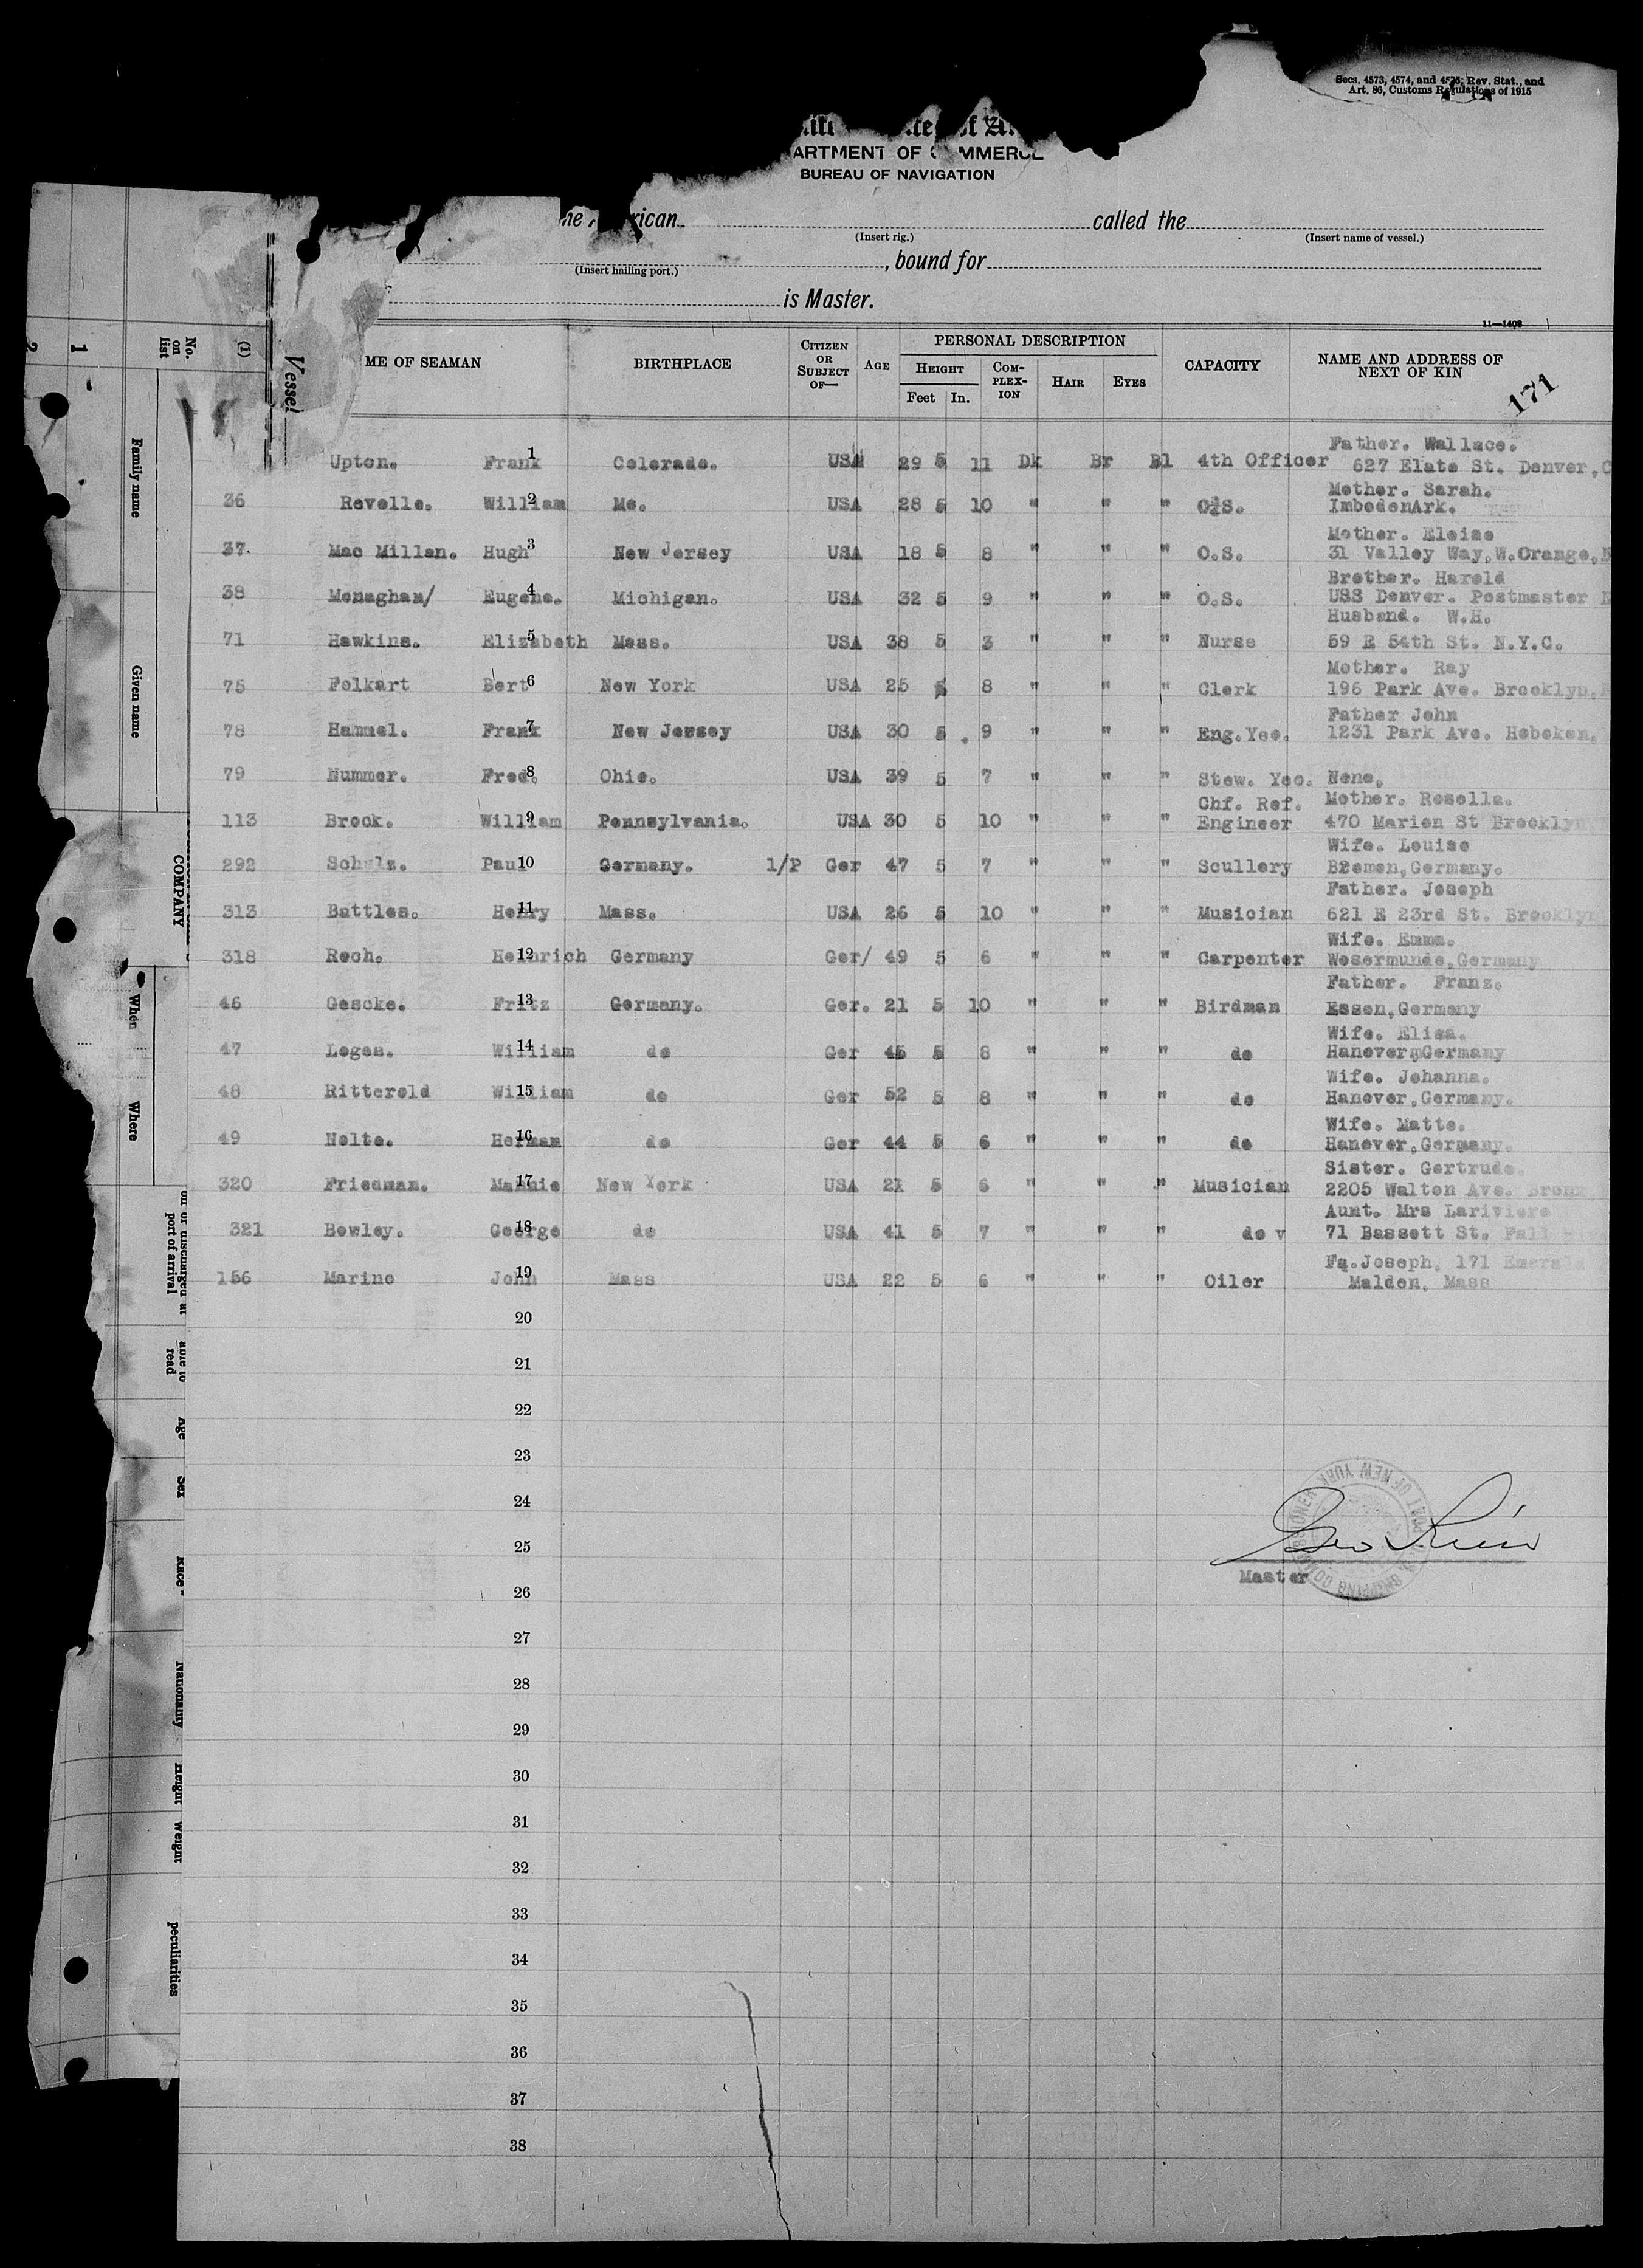 Secs. 4573, 4574, and 4575, Rev. Stat., and
Art. 86, Customs Regulations of 1915
ARTMENT OF COMMERCE
BUREAU OF NAVIGATION
called the
(Insert rig.) (Insert name of vessel.)
, bound for
(Insert hailing port.)
is Master.
11—1408
ME OF SEAMAN BIRTHPLACE CITIZEN OR SUBJECT OF— AGE PERSONAL DESCRIPTION CAPACITY NAME AND ADDRESS OF NEXT OF KIN
HEIGHT COM-PLEX-ION HAIR EYES
Feet In.
171
Father. Wallace.
Upton. Frank 1 Colorado. USA 29 5 11 Dk Br Bl 4th Officer 627 Elate St. Denver, C
Mother. Sarah.
36 Revelle. William 2 Mo. USA 28 5 10 " " " O.S. ImbodenArk.
Mother. Eloise
37. Mac Millan. Hugh 3 New Jersey USA 18 5 8 " " " O.S. 31 Valley Way, W.Orange, N
Brother. Harold
38 Monaghan/ Eugene. 4 Michigan. USA 32 5 9 " " " O.S. USS Denver. Postmaster
Husband. W.H.
71 Hawkins. Elizabeth 5 Mass. USA 38 5 3 " " " Nurse 59 E 54th St. N.Y.C.
Mother. Ray
75 Folkart Bert 6 New York USA 25 5 8 " " " Clerk 196 Park Ave. Brooklyn.
Father John
78 Hammel. Frank 7 New Jersey USA 30 5 9 " " " Eng.Yeo. 1231 Park Ave. Hoboken.
79 Nummer. Fred. 8 Ohio. USA 39 5 7 " " " Stew. Yeo. None.
Chf. Ref. Mother. Rosella.
113 Brock. William 9 Pennsylvania. USA 30 5 10 " " " Engineer 470 Marion St Brooklyn
Wife. Louise
292 Schulz. Paul 10 Germany. 1/P Ger 47 5 7 " " " Scullery Bremen, Germany.
Father. Joseph
313 Battles. Henry 11 Mass. USA 26 5 10 " " " Musician 621 E 23rd St. Brooklyn
Wife. Emma.
318 Rech. Heinrich 12 Germany Ger/ 49 5 6 " " " Carpenter Wesermunde, Germany
Father. Franz.
46 Gescke. Fritz 13 Germany. Ger. 21 5 10 " " " Birdman Essen, Germany
Wife. Elisa.
47 Loges. William 14 do Ger 45 5 8 " " " do Hanover Germany
Wife. Johanna.
48 Ritterold William 15 do Ger 52 5 8 " " " do Hanover, Germany.
Wife. Matte.
49 Nolte. Herman 16 do Ger 44 5 6 " " " do Hanover, Germany.
Sister. Gertrude.
320 Friedman. Mannie 17 New York USA 21 5 6 " " " Musician 2205 Walton Ave. Bronx
Aunt. Mrs Lariviere
321 Bowley. George 18 do USA 41 5 7 " " " do v 71 Bassett St. Fall
Fa. Joseph, 171 Emerald
156 Marino John 19 Mass USA 22 5 6 " " " Oiler Malden, Mass
20
21
22
23
24
25
26
27
28
29
30
31
32
33
34
35
36
37
38
Master
Vessel
(1)
No. on list
1
2
Family name
Given name
COMPANY
When
Where
port of arrival
able to read
Age
Sex
Race
Nationality
Height
Weight
peculiarities